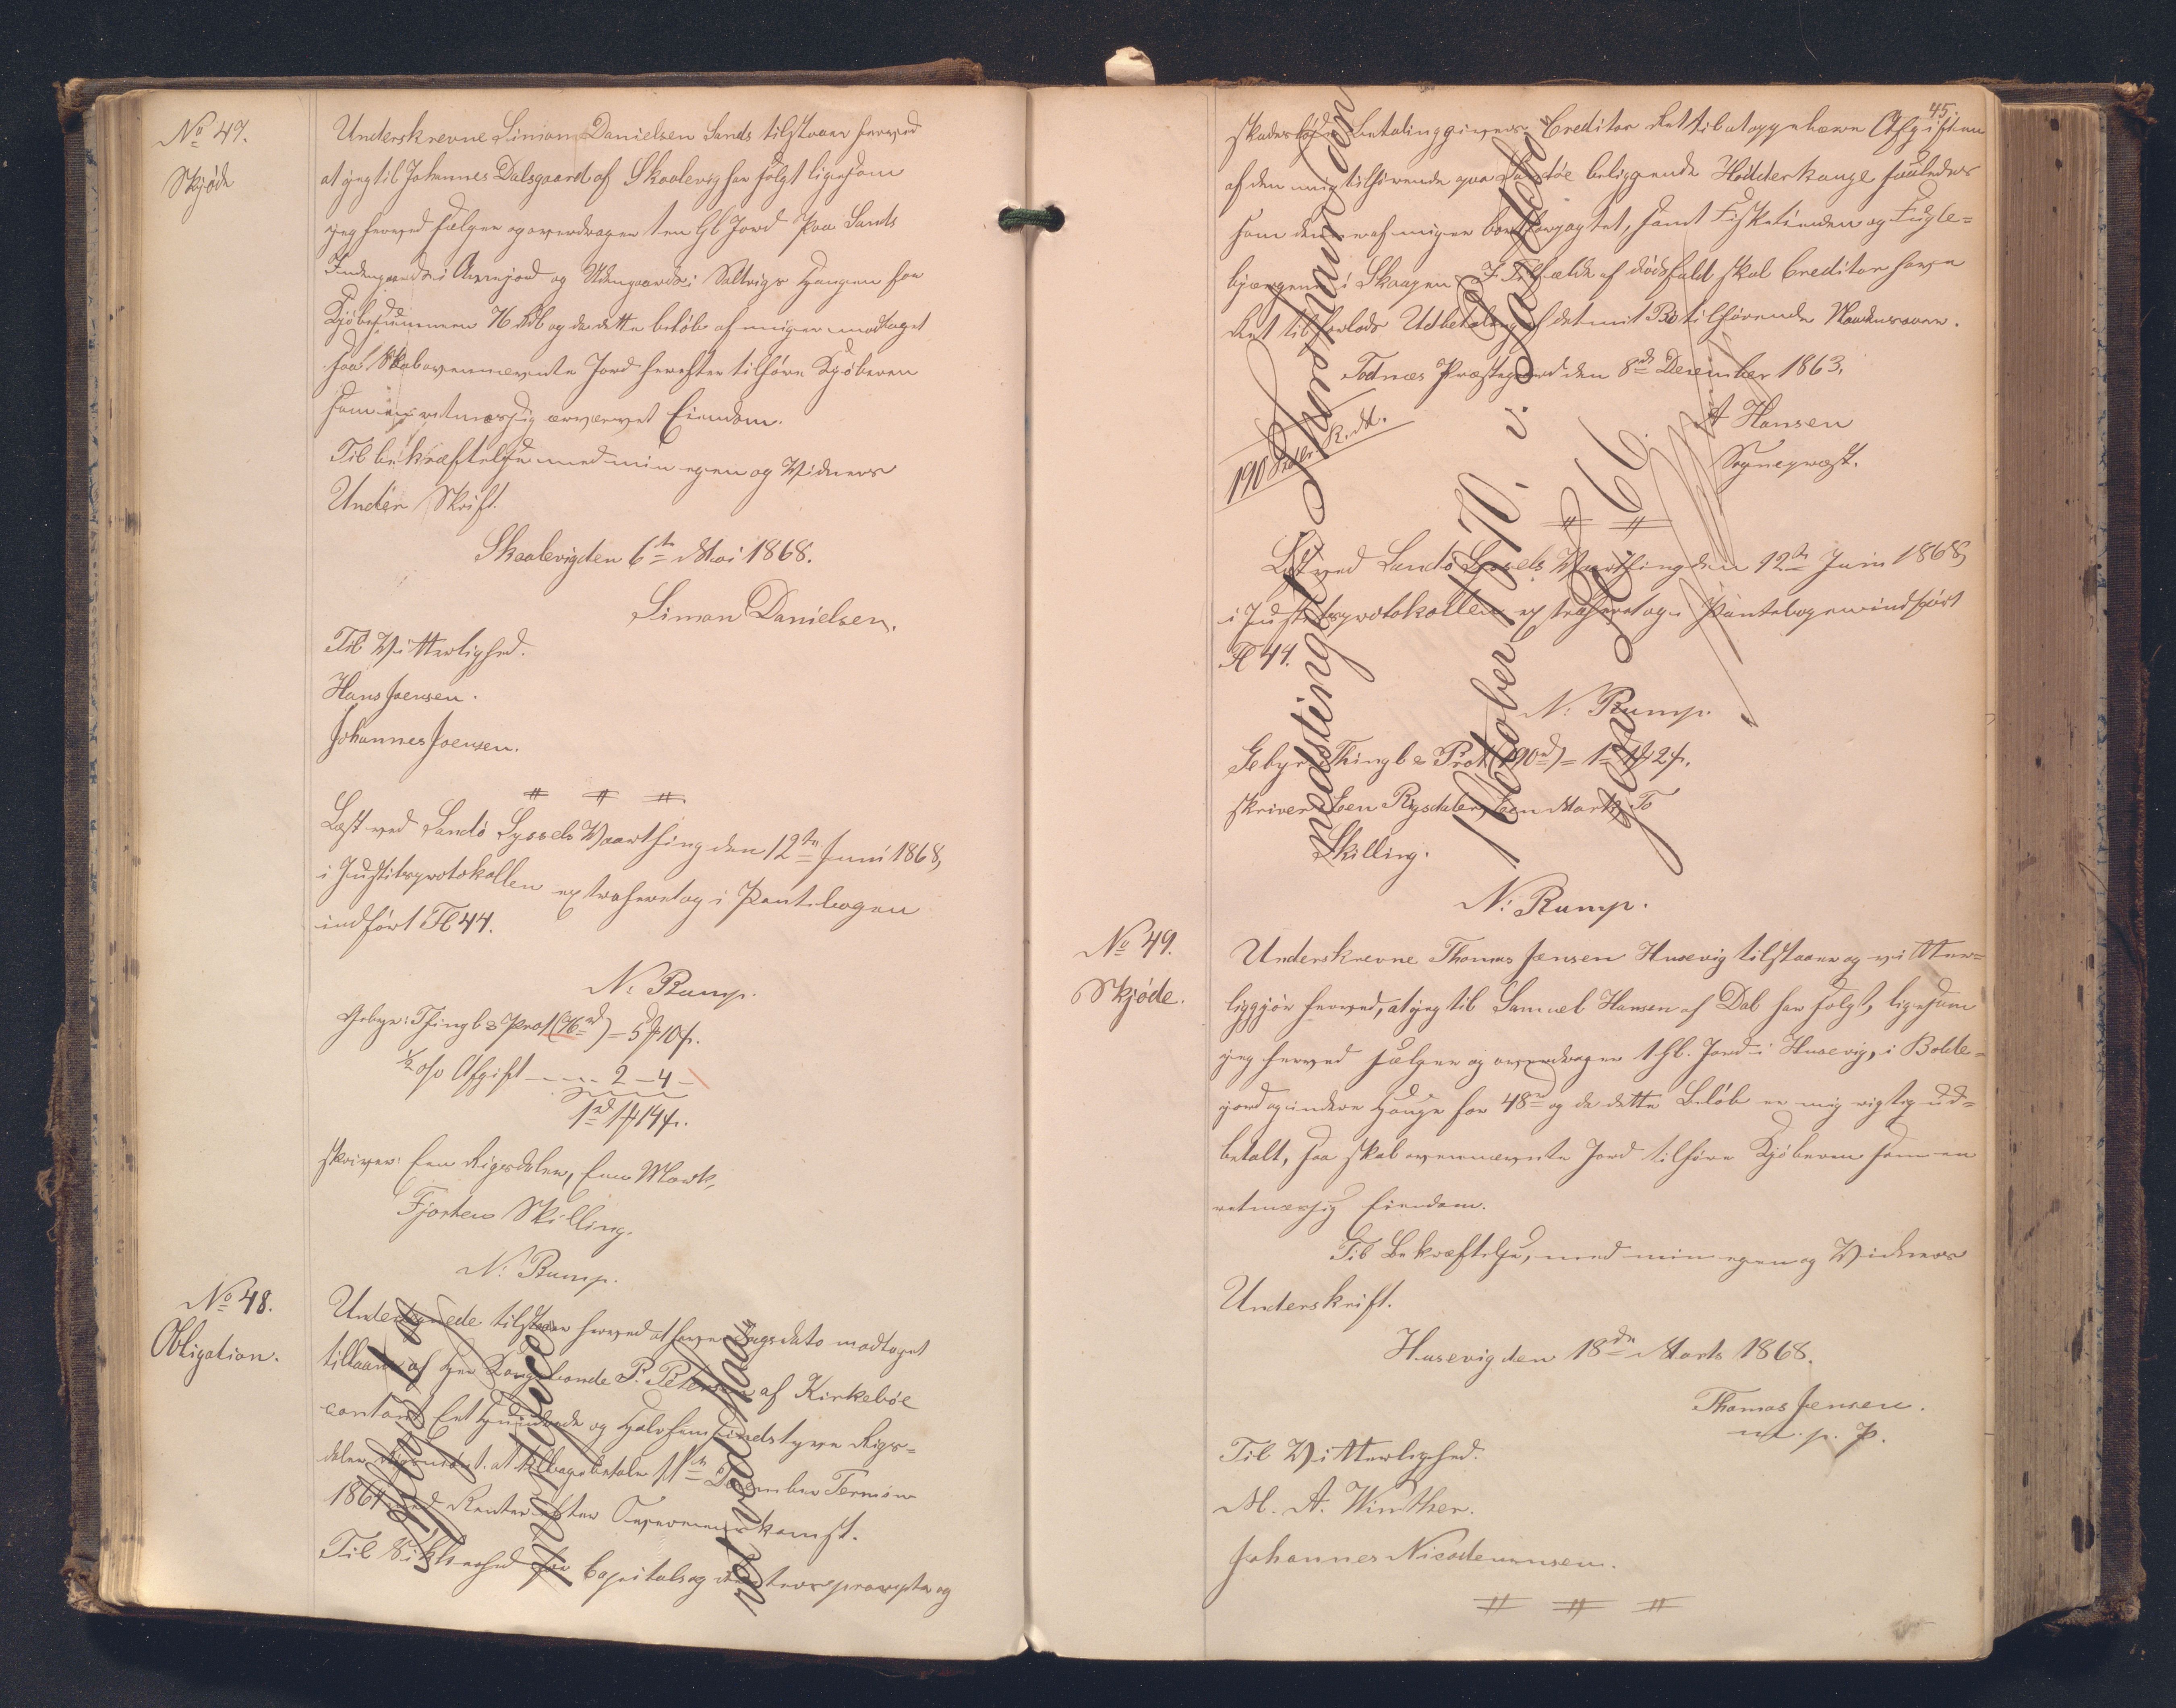 No 47.
Skjøde
Underskrevne Simon Danielsen Sands tilstaaer herved
at jeg til Johannes Dalsgaard af Skaalevig har solgt ligesom
jeg herved sælger og overdrager 1 en Gl Jord paa Sands
Indengaards i og Udengaards i Saltvigs Haugen for
Kjøbesummen 76 Rdl og da dette beløb af mig er modtaget
saa skal ovennævnte Jord herefter tilhøre Kjøberen
som en retmæssig erhvervet Eiendom.
Til bekræftelse med min egen og Vidners
Under Skrift.
Skaalevig den 6te Mai 1868.
Simon Danielsen.
Til Vitterlighed.
Hans Joensen.
Johannes Joensen.
Læst ved Sandø Syssels Vaarthing den 12te Juni 1868,
i Justitsprotokollen extraheret og i Pantebogen
indført Fl 44.
N. Rump.
Gebyr: Thingl & Prot (76rd) = 5 10
½ o/o Afgift - - - 2 - 4 -
1rd 1 14
skriver: Een Rigsdaler, Een Mark,
Fjorten Skilling.
N. Rump.
No 48.
Obligation.
Undertegnede tilstaaer herved at have Dagsdato modtaget
tillaans af Hr Kongsbonde P. Petersen af Kirkebøe
contant Eet Hundrede og Halvfemsindstyve Rigs=
daler Rigsmønt. at tilbagebetale 11te December Termin
1864 med Renter efter Overenskomst.
Til Sikkerhed for Capitals og Renters prompte og
45.
skadesløse betaling gives Creditor Ret til at oppebære Afgiften
af den mig tilhørende paa Sandøe beliggende Hodderhauge saaledes
som denne af mig er bortforpagtet, samt Fisketienden og Fugle=
bjærgene i Skaapen. I Tilfælde af dødsfald skal Creditor have
Ret til forlods Udbetaling af det mit Bo tilhørende Naadensaar.
Todnæs Præstegaard den 8de December 1863.
A Hansen
Sognepræst.
190 Rdl. R. M.
Læst ved Sandø Syssels Vaarthing den 12te Juni 1868,
i Justitsprotokollen extraheret og i Pantebogen indført
Fl 44.
N. Rump.
Gebyr Thingl & Prot (190rd) = 1rd 1 2
skriver Een Rigsdaler, Een Mark, To
Skilling.
N. Rump.
Aflyst og
ved
nedstinget Thorshavn den
1 October 1870.
No 49.
Skjøde.
Underskrevne Thomas Jensen Husevig tilstaaer og vitter=
liggjør herved, at jeg til Samuel Hansen af Dal har solgt, ligesom
jeg herved sælger og overdrager 1 Gl. Jord i Husevig, i Bolde=
jord og indere Hauge for 48rd og da dette Beløb er mig rigtig ud=
betalt, saa skal ovennævnte Jord tilhøre Kjøberen som en
retmæssig Eiendom.
Til Bekræftelse, med min egen og Vidners
Underskrift.
Husevig den 18de Marts 1868.
Thomas Jensen.
m. p. P.
Til Vitterlighed.
M. A. Winther.
Johannes Nicodemusen.